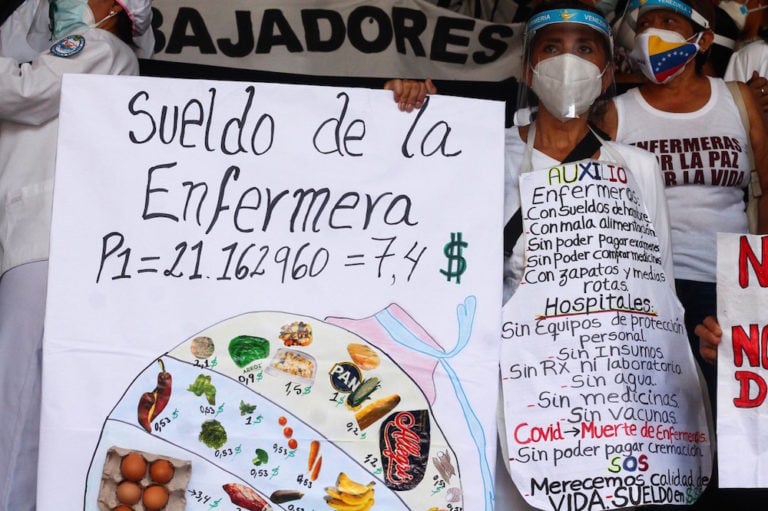 BAJADORES
VENEZUELA
Sueldo de la
Enfermera
P1=21.162960=7,4 $
ENFERMERAS
POR LA PAZ
POR LA VIDA
AUXILIO
Enfermeros:
Con Sueldos de hambre
Con mala alimentación
Sin poder pagar exámenes
Sin poder comprar medicinas
Con zapatos y medias
rotas.
Hospitales:
Sin Equipos de protección
personal
- Sin Insumos
- Sin RX ni laboratorio
- Sin agua
- Sin medicinas
Sin vacunas
Covid → Muerte de Enfermeras
- Sin poder pagar cremación
SOS
Merecemos Calidad de
VIDA. SUELDO en $
2,1$
ARROZ
0,9$
1,5$
PAN
1$
0,53
0,53
0,53
0,53
0,53
0,53
Allegri
3,4$
0,53